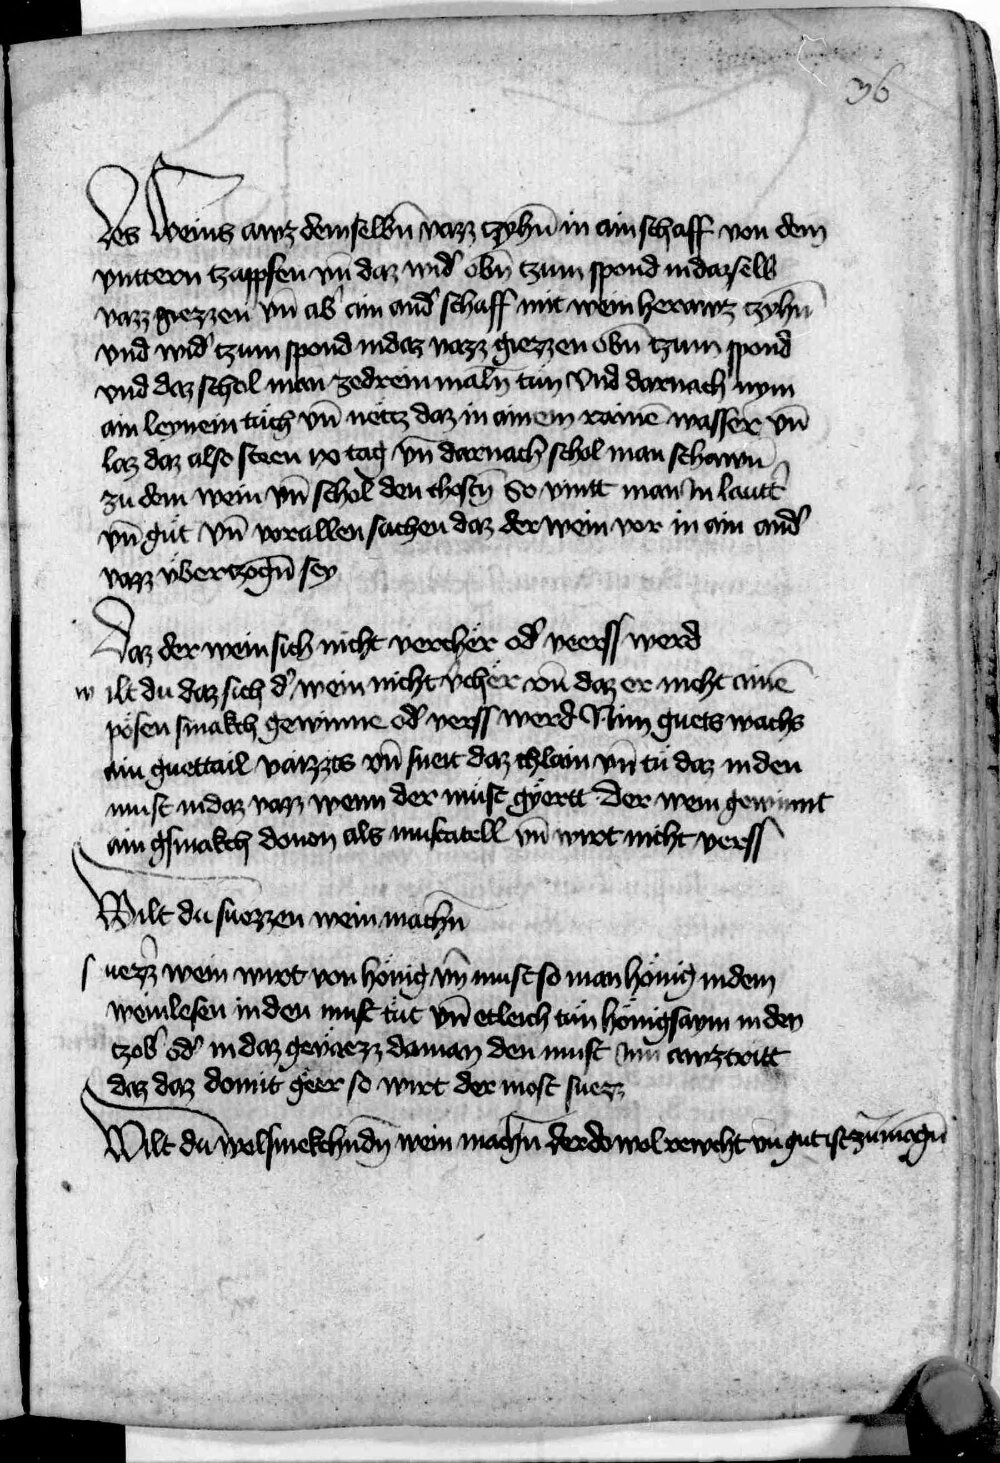 36
Des Weins awz demselbn̄ vazz tzyhn̄ in ain schaff von dem
vnttern tzappfen vn̄ daz wid' obn̄ tzum spond in dazselb
vazz giezzen vn̄ ab' ain and' schaff mit wein herawz tzyhn̄
vnd wid' tzum spond in daz vazz giezzen obn̄ tzum spond
vnd daz schol man ze drein maln̄ tun Vnd darnach nym
ain leynein tuch vn̄ netz daz in ainem rainē wasser vn̄
laz daz also steen xo tag vn̄ darnach schol man schawn
zu dem wein vn̄ schol den chostn̄ So vintt man in lautt'
vn̄ gůt vn̄ vor allen sachen daz der wein vor in ain and'
vazz vberzogn̄ sey
Daz der wein sich nicht vercher od' veerss werd
w ilt du daz sich d' wein nicht v'cher vn̄ daz er nicht ainē
pösen smakch gewinne od' verss werd Nim guets wachs
ain guettail vaizzts vn̄ sneit daz chlain vn̄ tu daz in den
must in daz vazz wenn der must gyertt Der wein gewinnt
ain gsmakch douon als muscatell vn̄ wirt nicht verss
Wilt du suezzen wein machn̄
s uezz' wein wirt von hönig vn̄ must so man hönig in dem
weinlesen in den must tůt vn̄ etleich tun hönigsaym in den
tzob' od' in daz gevaezz da man den must inn awztritt
daz daz domit geer so wirt der most suezz
Wilt du wolsmekchndn̄ wein machn̄ der do wol rewcht vn̄ gut ist zu mogn̄